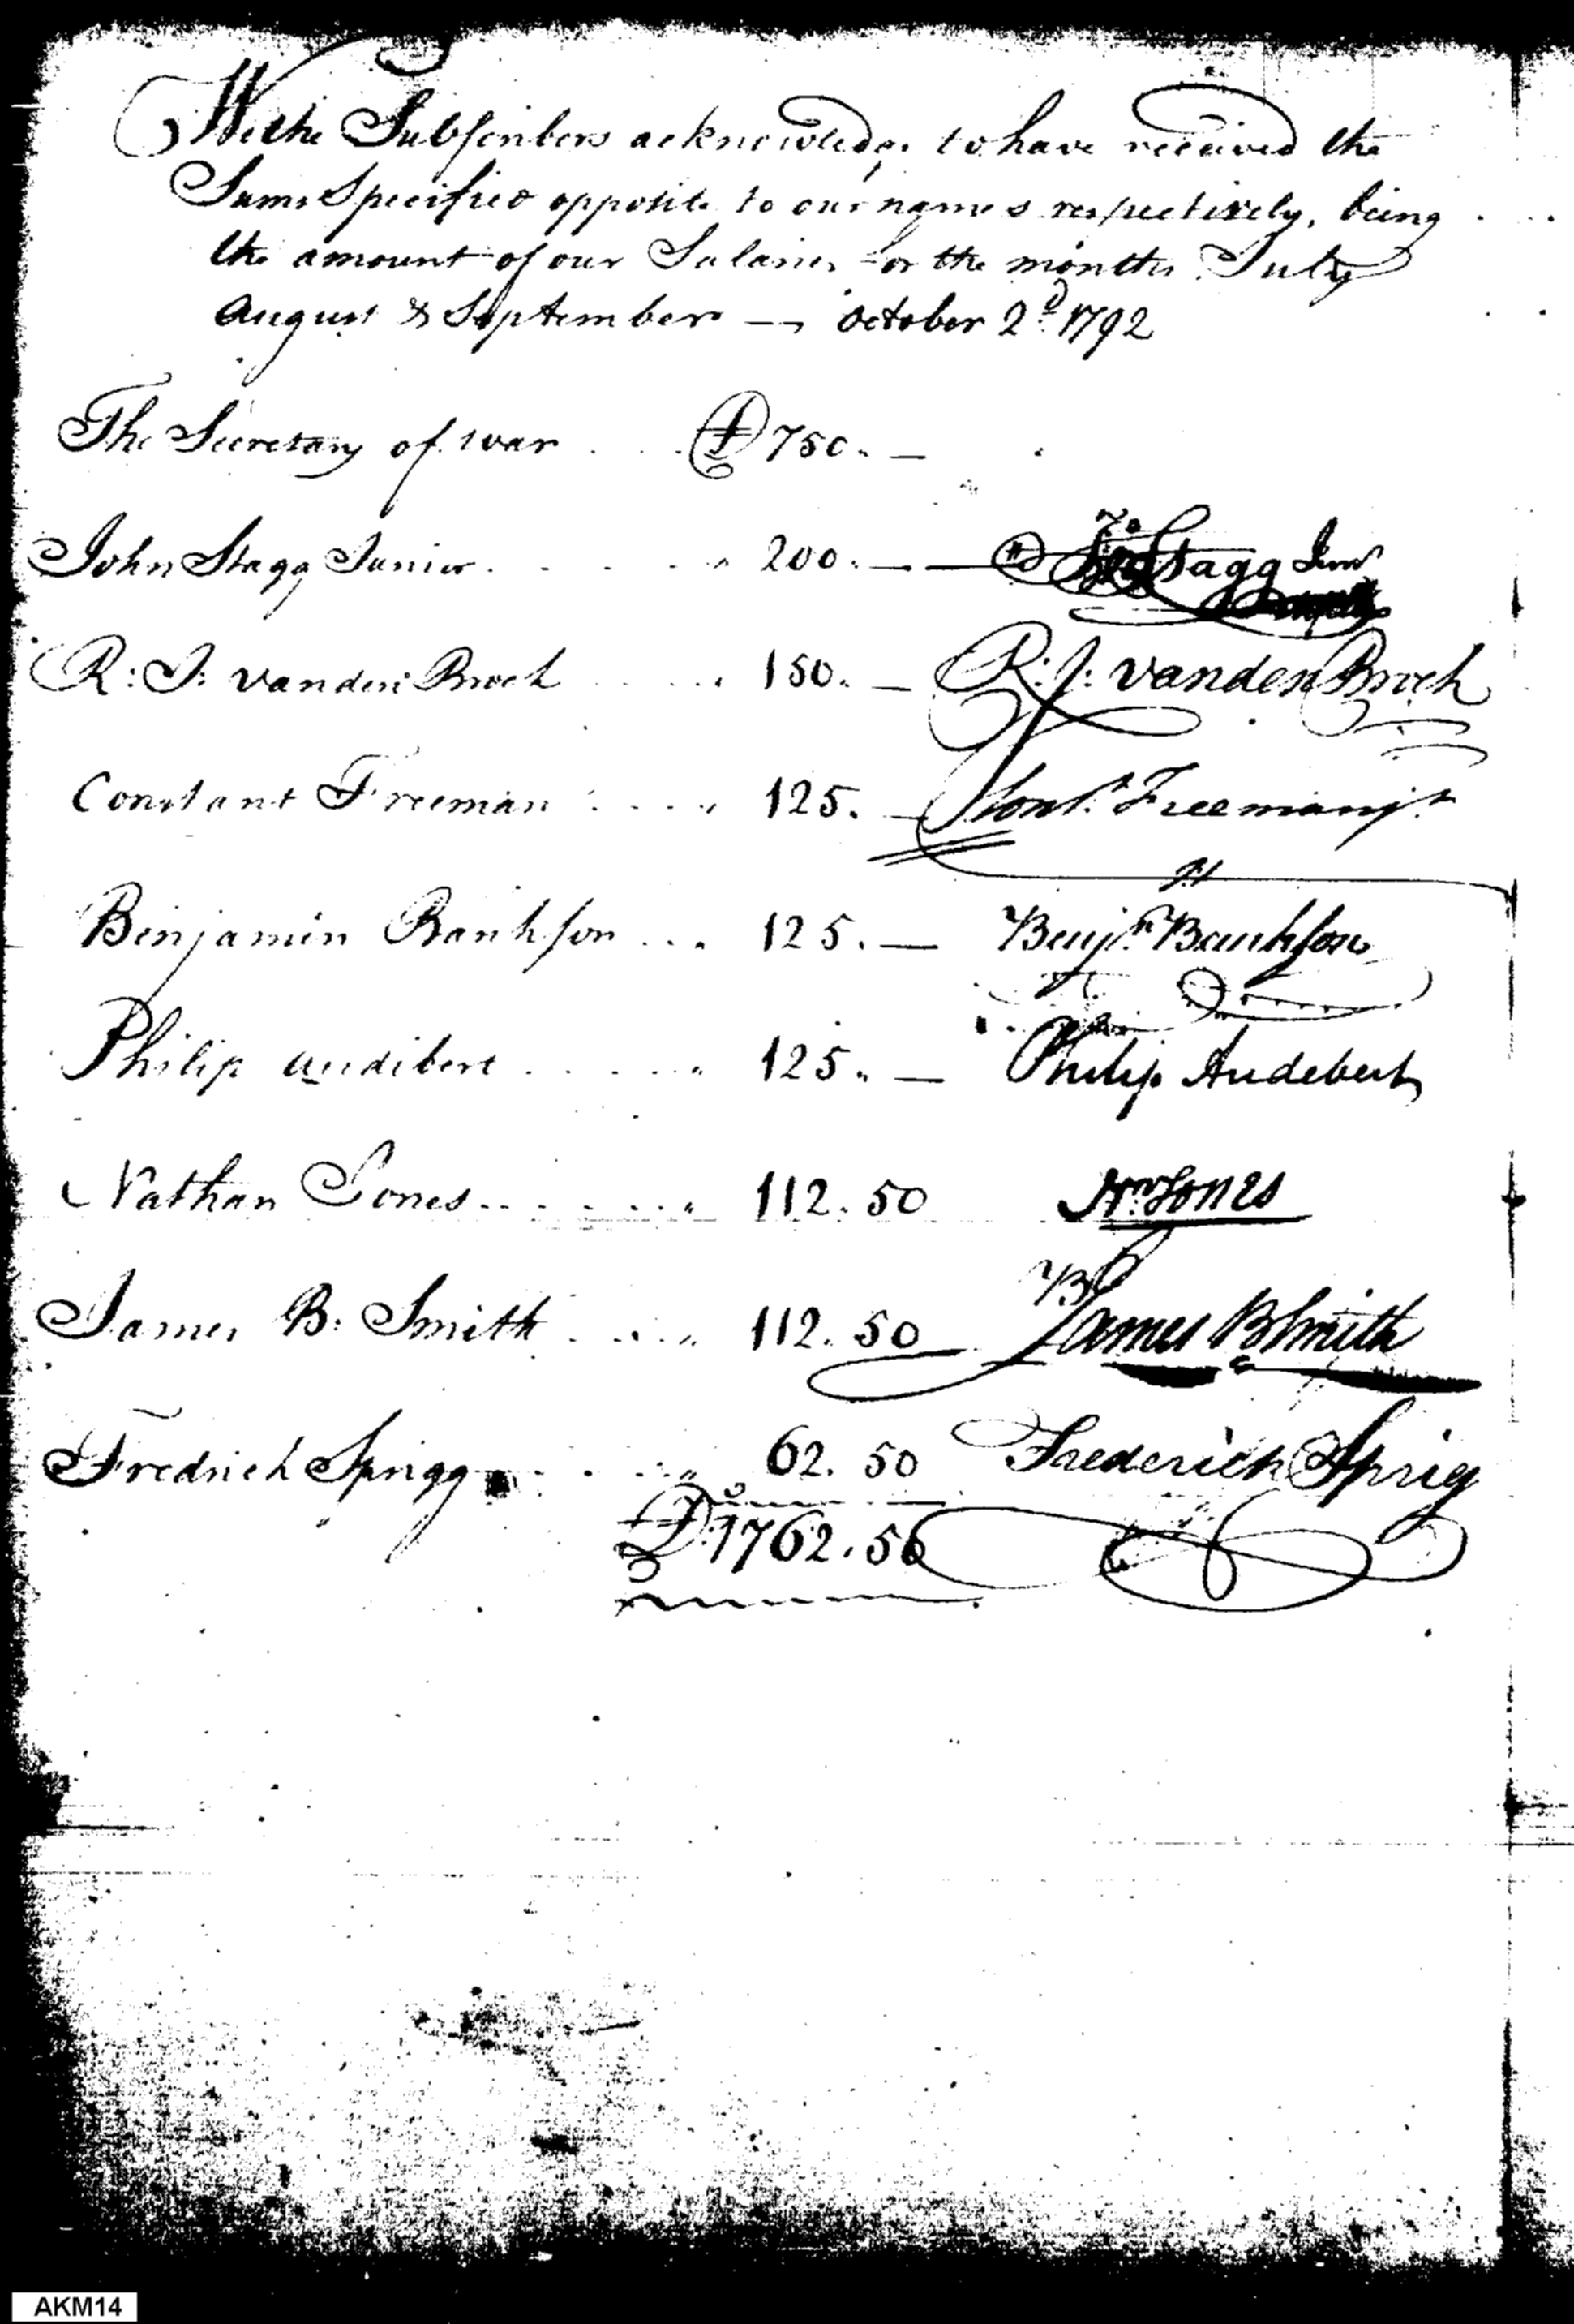 We the Subscribers acknowledge to have received the
Sums Specified opposite to our names respectively, being
the amount of our Salaries for the months July
August & September — October 2d. 1792
The Secretary of war . . . D 750. —
John Stagg Junior . . . . . " 200. — — Jno Stagg Junr
R: J: vanden Broek . . . . . 150. — R: J: vanden Broek
Constant Freeman . . . . " 125. — Const. Freeman jr
Benjamin Bankson . . . 125. — Benjn. Bankson
Philip Audibert . . . . . " 125. — Philip Audebert
Nathan Jones . . . . . . " 112. 50 Nn Jones
James B: Smith . . . . " 112. 50 James B Smith
Fredrick Sprigg . . . . . " 62. 50 Frederick Sprig
D. 1762. 50
AKM14